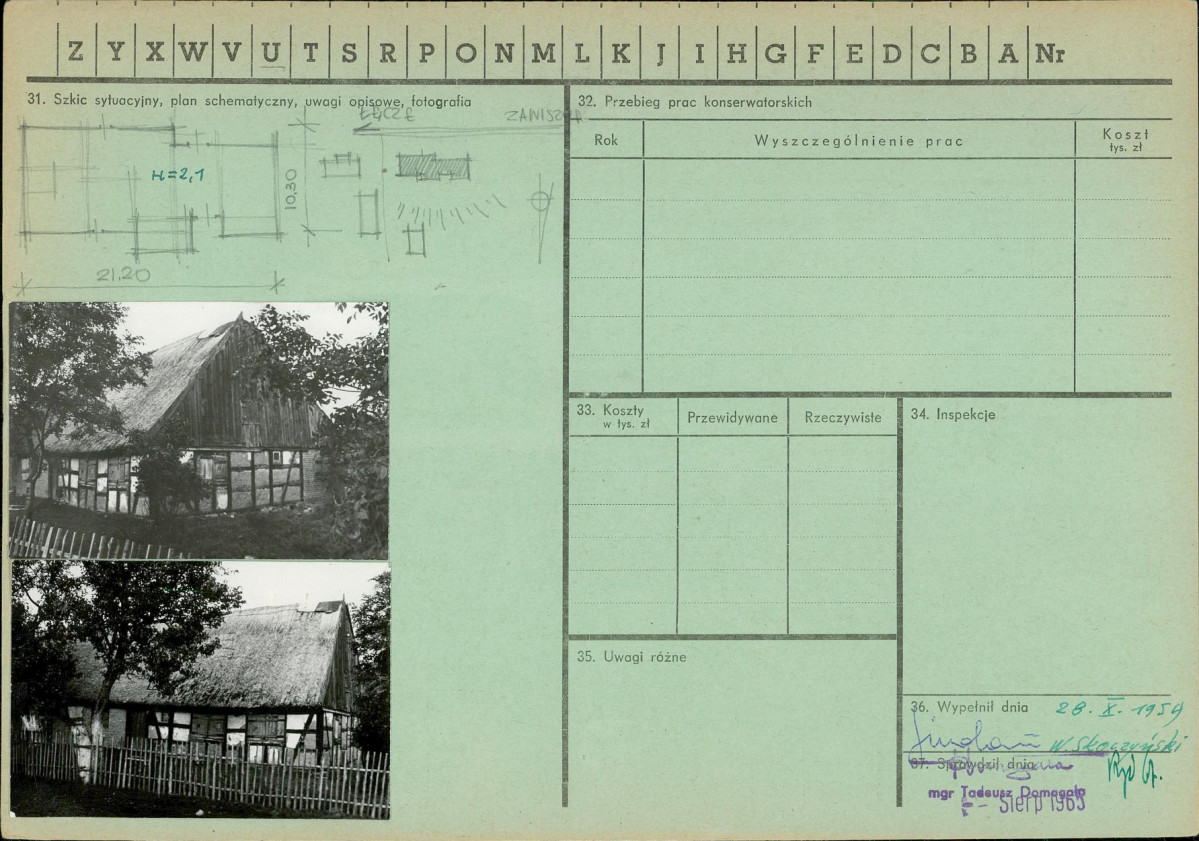 Z Y X W V U T S R P O N M L K J I H G F E D C B A Nr
31. Szkic sytuacyjny, plan schematyczny, uwagi opisowe, fotografia
ŁĄCZE
H=2,1
10,30
21,20
32. Przebieg prac konserwatorskich
Rok
Wyszczególnienie prac
Koszt
tys. zł
33. Koszty
w tys. zł
Przewidywane
Rzeczywiste
34. Inspekcje
35. Uwagi różne
36. Wypełnił dnia 28. X. 1959
W. Skoczyński
37. Sprawdził dnia
mgr Tadeusz Domagała
Sierp 1963